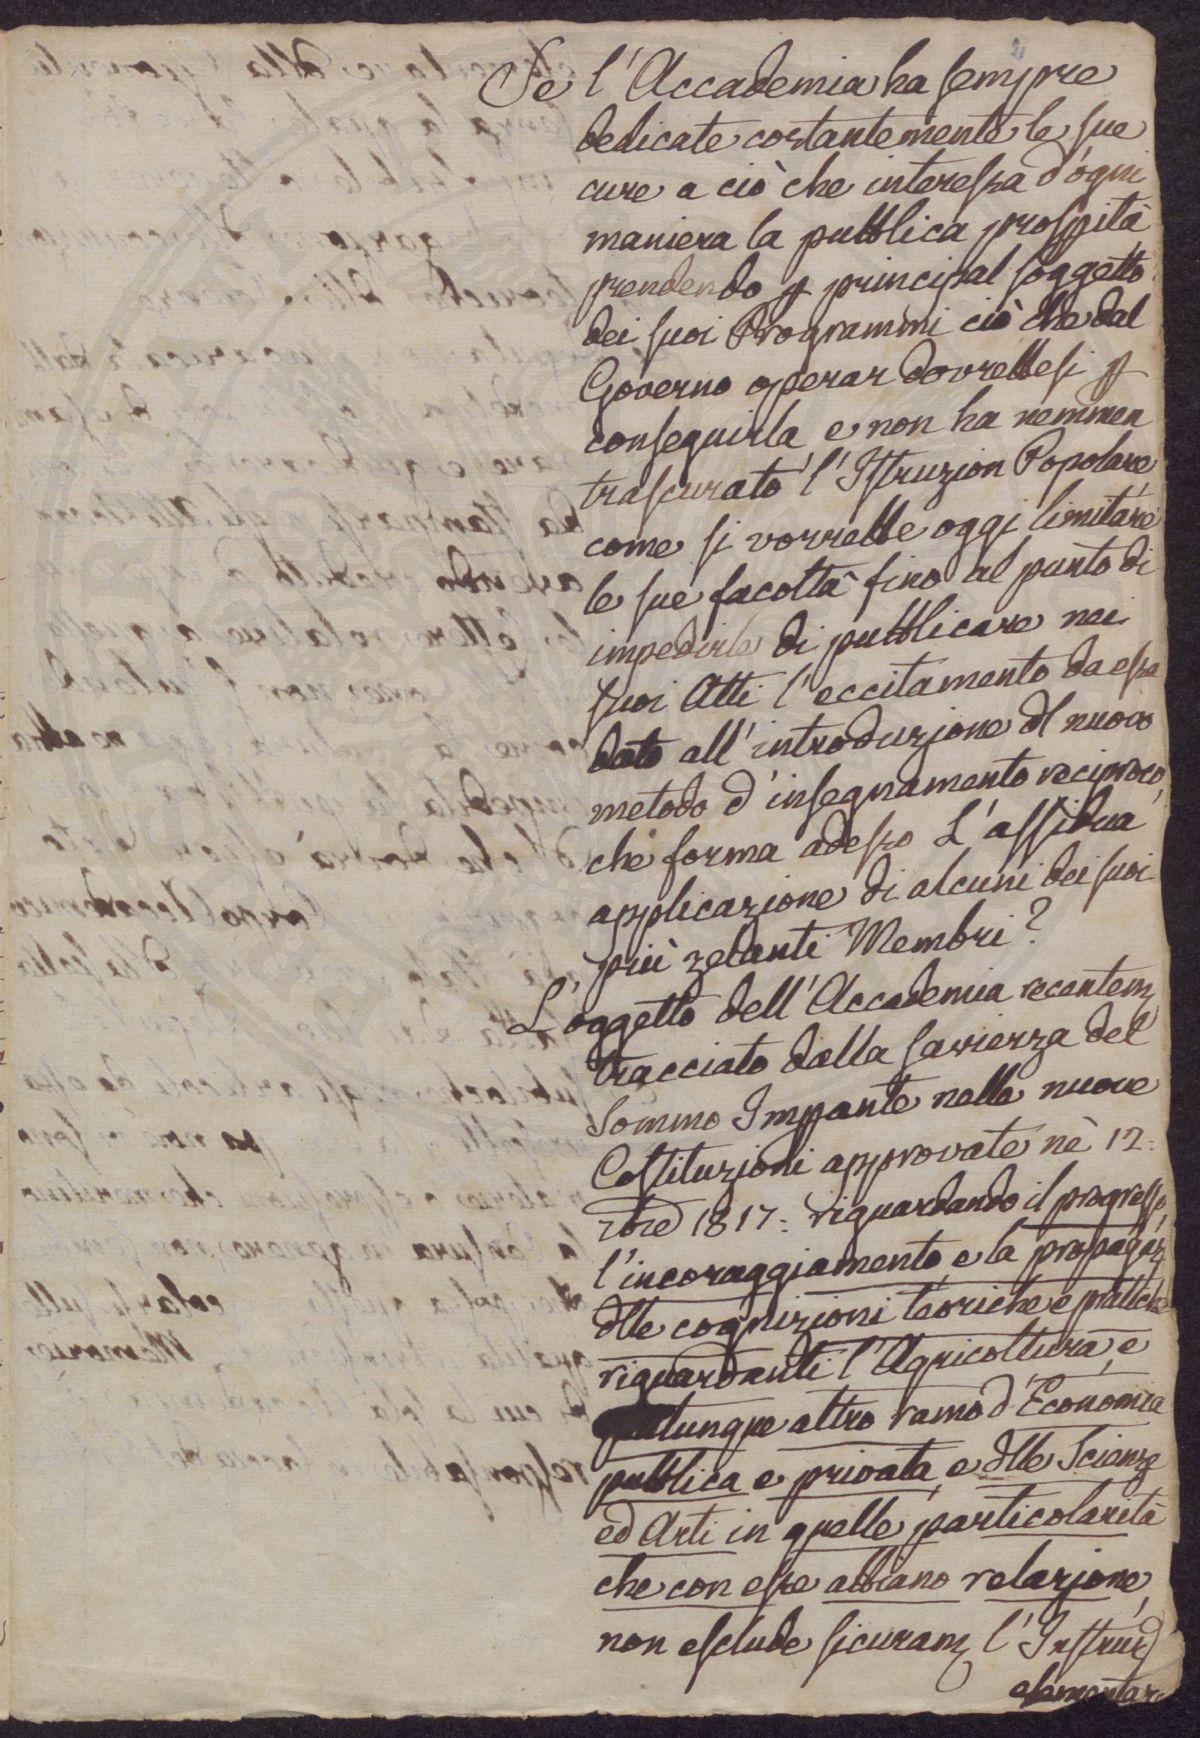 Se l'Accademia ha sempre
dedicate costantemente le sue
cure a ciò che interessa d'ogni
maniera la pubblica prosp̱ità
prendendo ꝑ principal soggetto
dei suoi Programmi ciò che dal
Governo operar dovrebbesi ꝑ
conseguirla e non ha nemmen
trascurato l'Istruzion Popolare,
come si vorrebbe oggi limitare
le sue facoltà fino al punto di
impedirle di pubblicare nei
suoi Atti l'eccitamento da essa
dato all'introduzione dl nuovo
metodo d'insegnamento reciproco,
che forma adesso L'assidua
applicazione di alcuni dei suoi
più zelanti Membri?
L'oggetto dell'Accademia recentem
tracciato dalla saviezza del
Sommo Imp̱ante nelle nuove
Costituzioni approvate nè 12.
1817: riguardando il progresso,
l'incoraggiamento, e la propagaz
dlle cognizioni teoriche e pratiche
riguardanti l'Agricoltura, e
qualunque altro ramo d'Economia
pubblica e privata, e dlle Scienze
ed Arti in quelle particolarità
che con esse abbiano relazione,
non esclude sicuram l'Instruz
elementare